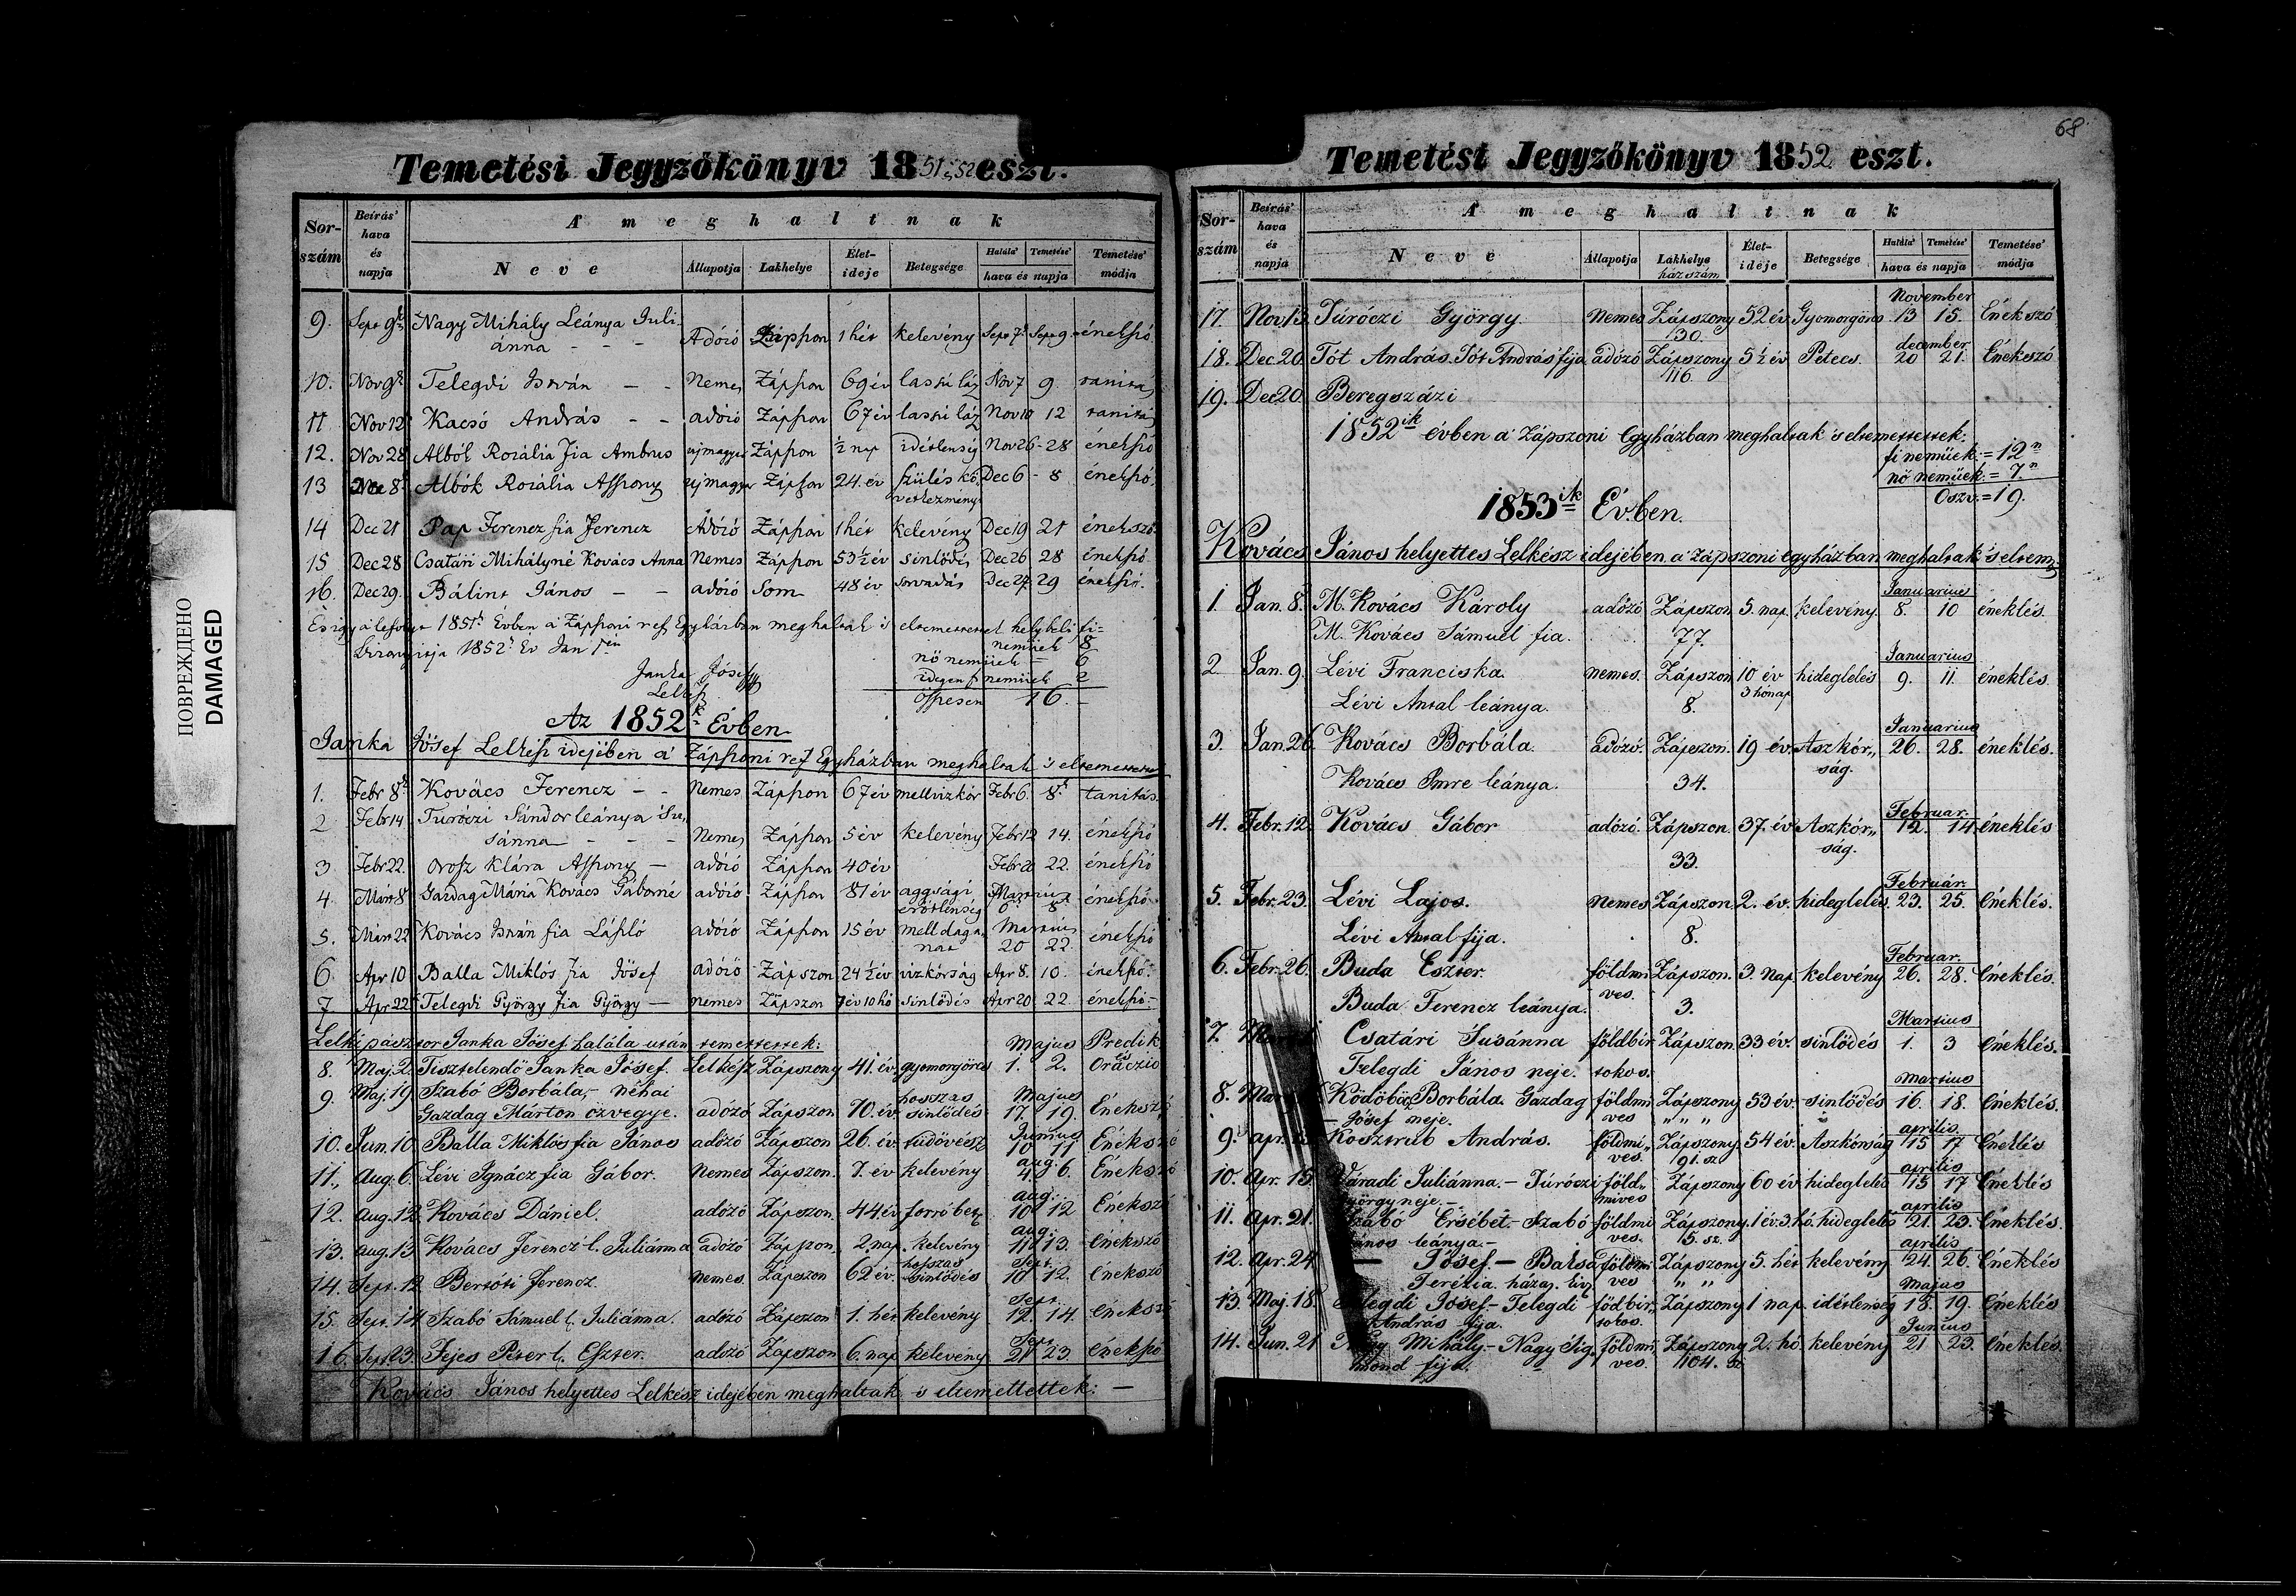 68
ПОВРЕЖДЕНО
DAMAGED
Temetési Jegyzőkönyv 1851 s 52 eszt.
Sor-szám Beírás' hava és napja A meghaltnak
Neve Állapotja Lakhelye Élet-ideje Betegsége Halála' Temetése' hava és napja Temetése' módja
9. Sept 9 Nagy Mihály Leánya Juli-
ánna - - - Adózó Zápszon 1 hét kelevény Sept 7 Sept 9. énekszó
10. Nov 9 Telegdi István - - Nemes Zápszon 69 év lassu láz Nov 7 9. tanitás
11 Nov 12 Kacsó András - - adózó Zápszon 67 év lassu láz Nov 10 12 tanitás
12. Nov 28 Albók Rozália fia Ambrus ujmagyar Zápszon ½ nap idétlenség Nov 26 - 28 énekszó
13 Dec 8 Albók Rozália Asszony ujmagyar Zápszon 24. év szülés kö- Dec 6 - 8 énekszó
vetkezménye
14 Dec 21 Pap Ferencz fia Ferencz Adózó Zápszon 1 hét kelevény Dec 19 21 énekszó
15 Dec 28 Csatári Mihályné Kovács Anna Nemes Zápszon 53½ év sinlődés Dec 26 28 énekszó
16. Dec 29. Bálint János - - adózó Som 48 év sorvadás Dec 27. 29 énekszó
És igy a lefolyt 1851 Évben a Zápszoni ref Egyházban meghaltak s eltemettettek helybeli fi-
neműek 8
1852 Év Jan 1
nő neműek = 6
Janka Jósef
idegen f neműek 2
Lelkész
összesen 16.
Az 1852k Évben
Janka Jósef Lelkész idejében a Zápszoni ref Egyházban meghaltak s eltemettettek
1. Febr 8 Kovács Ferencz - - Nemes Zápszon 67 év mellvizkór Febr 6. 8 tanitás
2 Febr 14 Turóczi Sándor leánya Su-
sánna - - - Nemes Zápszon 5 év kelevény Febr 12 14. énekszó
3 Febr 22. Orosz Klára Asszony - adózó Zápszon 40 év Febr 20 22. énekszó
4. Márt 8 Gazdag Mária Kovács Gáborné adózó Zápszon 81 év aggsági erőtlenség Martius 6 8 énekszó
5. Márt 22 Kovács István fia László adózó Zápszon 15 év mell daga- nat Martius 20 22. énekszó
6. Apr 10 Balla Miklós fia Jósef adózó Zápszon 24½ év vizkórság Apr 8. 10. énekszó
7 Apr 22 Telegdi György fia György - nemes Zápszon 7 év 10 hó sinlődés Apr 20 22. énekszó
Lelkipásztor Janka Jósef halála után temettettek: Majus Prédik
8. Maj. 2. Tisztelendő Janka Jósef. Lelkész Zápszony 41. év. gyomorgörcs 1. 2. és Oráczio
9. Maj. 19 Szabó Borbála, néhai hosszas Majus
Gazdag Márton özvegye. adózó Zápszon 70. év sinlődés 17 19. Énekszó
10. Jun. 10 Balla Miklós fia János adózó Zápszon 26. év tüdővész Junius 10 11 Énekszó
11., Aug. 6. Lévi Ignácz fia Gábor. Nemes Zápszon. 7. év kelevény aug. 4. 6. Énekszó
12. Aug. 12. Kovács Dániel. adózó Zápszon. 44. év forró bet. aug. 10 12 Énekszó
13. Aug. 13 Kovács Ferencz l. Juliánna adózó Zápszon 2. nap. kelevény aug. 11 13. Énekszó
14. Sept. 12. Bertóti Ferencz. nemes. Zápszon 62 év. hosszas sinlődés Sept. 10 12. Énekszó
15. Sept. 14 Szabó Sámuel l. Juliánna. adózó Zápszon 1. hét kelevény Sept. 12. 14. Énekszó
16. Sept 23. Fejes Péter l. Eszter. adózó Zápszon 6. nap kelevény Sept. 21 23. Énekszó
Kovács János helyettes Lelkész idejében meghaltak s eltemettettek: -
Temetést Jegyzőkönyv 1852 eszt.
Sor-szám Beírás' hava és napja A meghaltnak
Neve Állapotja Lakhelye ház szám Élet-ideje Betegsége Halála' Temetése' hava és napja Temetése' módja
17. Nov 13. Túróczi György. Nemes Zápszony 52 év Gyomorgörcs November 13 15. Énekszó
130.
18. Dec. 20. Tót András. Tót András' fija adózó Zápszony 5½ év Petecs. december 20 21. Énekszó
116.
19. Dec 20. Beregszázi
1852ik évben a' Zápszoni Egyházban meghaltak 's eltemettettek:
fi neműek. = 12
nő neműek. = 7.
Öszv. = 19.
1853ik Évben.
Kovács János helyettes Lelkész idejében a' Zápszoni egyházban meghaltak 's eltem.
1. Jan. 8. M. Kovács Károly adózó Zápszon 5. nap. kelevény. Januarius 8. 10 éneklés.
M. Kovács Sámuel fia. 77.
2 Jan. 9. Lévi Franciska. nemes. Zápszon 10 év 3 hónap hideglelés Januarius 9. 11. éneklés.
Lévi Antal leánya. 8.
3. Jan. 26. Kovács Borbála. adózó. Zápszon. 19 év. Aszkór„ Januarius 26. 28. éneklés.
ság.
Kovács Imre leánya. 34.
4. Febr. 12. Kovács Gábor adózó. Zápszon. 37. év Aszkór„ Februar. 12. 14. éneklés
ság.
33.
5. Febr. 23. Lévi Lajos. nemes Zápszon 2. év. hideglelés. Február. 23. 25. Éneklés.
Lévi Antal fija. 8.
6. Febr. 26. Buda Eszter. földmi Zápszon. 3. nap. kelevény Februar. 26. 28. Éneklés.
ves.
Buda Ferencz leánya. 3.
7. Csatári Susánna földbir Zápszon. 33 év. sinlődés Martius 1. 3 Éneklés.
Telegdi János neje. tokos.
8. Ködöböcz Borbála. Gazdag földmi Zápszony 53 év. sinlődés Martius 16. 18. Éneklés.
Jósef neje. ves „ „ „
9. apr. Kosztrub András. földmi„ Zápszony. 54 év. Aszkórság aprilis 15 17 Éneklés
ves. 91. sz
10. Apr. 15. Váradi Juliánna. - Túróczi föld„ Zápszony 60 év hideglelés aprilis 15 17 Éneklés
György neje. - mives
11. Apr. 21. Szabó Ersébet. - Szabó földmi Zápszony. 1 év. 3. hó. hideglelés aprilis 21. 23. Éneklés.
János leánya. - ves. 15. sz.
12. Apr. 24. Jósef. - Balsa földmi Zápszony 5. hét kelevény aprilis 24. 26. Éneklés
Terézia. ves „ „
13. Maj. 18. Telegdi Jósef. - Telegdi födbir„ Zápszony 1 nap. idétlenség Majus 18. 19. Éneklés
András fija. tokos.
14. Jun. 21 Nagy Mihály. - Nagy Sig„ földmi Zápszony 2. hó. kelevény Junius 21 23. Éneklés.
mond fija. ves. 104. sz.